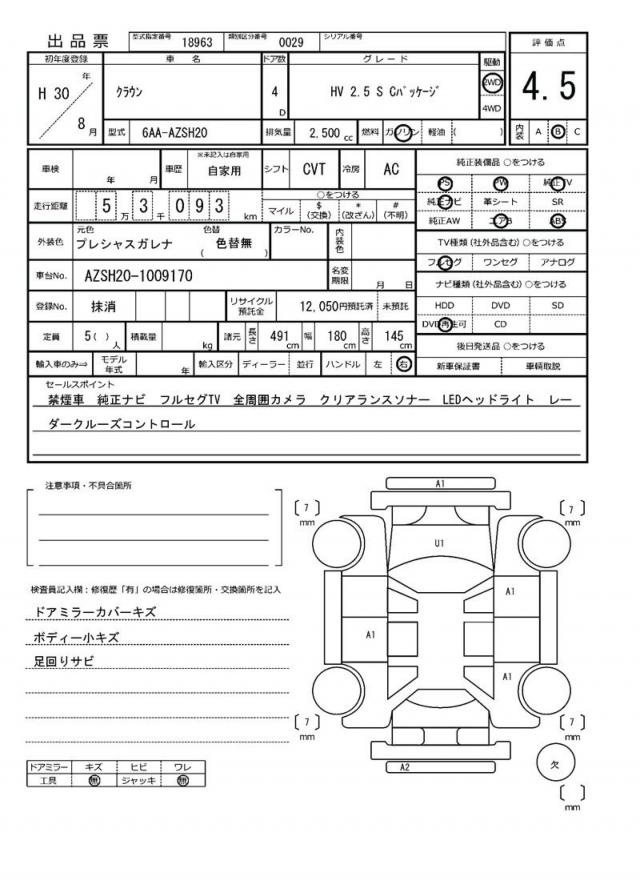 出品票 型式指定番号 18963 類別区分番号 0029 シリアル番号
初年度登録 車名 ドア数 グレード 駆動 評価点
H 30 年 8 月 クラウン 4 D HV 2.5 S Cパッケージ 2WD 4WD 4.5
型式 6AA-AZSH20 排気量 2,500 cc 燃料 ガソリン 軽油 ( ) 内装 A B C
車検 年 月 車歴 ※未記入は自家用 自家用 シフト CVT 冷房 AC
走行距離 5 万 3 千 0 9 3 km ○をつける マイル $ (交換) * (改ざん) # (不明)
外装色 元色 プレシャスガレナ 色替 ( 色替無 ) カラーNo. 内装色
車台No. AZSH20-1009170 名変期限 月 日
登録No. 抹消 リサイクル預託金 12,050円預託済 未預託
定員 5( ) 人 積載量 kg 諸元 長さ 491 cm 幅 180 cm 高さ 145 cm
輸入車のみ⇒ モデル年式 年 輸入区分 ディーラー 並行 ハンドル 左 右
純正装備品 ○をつける
PS PW 純正TV
純正ナビ 革シート SR
純正AW エアB ABS
TV種類(社外品含む)○をつける
フルセグ ワンセグ アナログ
ナビ種類(社外品含む)○をつける
HDD DVD SD
DVD再生可 CD
後日発送品 ○をつける
新車保証書 車輌取説
セールスポイント
禁煙車 純正ナビ フルセグTV 全周囲カメラ クリアランスソナー LEDヘッドライト レー
ダークルーズコントロール
注意事項・不具合箇所
検査員記入欄:修復歴「有」の場合は修復箇所・交換箇所を記入
ドアミラーカバーキズ
ボディー小キズ
足回りサビ
ドアミラー キズ ヒビ ワレ
工具 無 ジャッキ 無
A1
7 mm
7 mm
U1
A1
A1
A1
7 mm
7 mm
A2
欠
mm